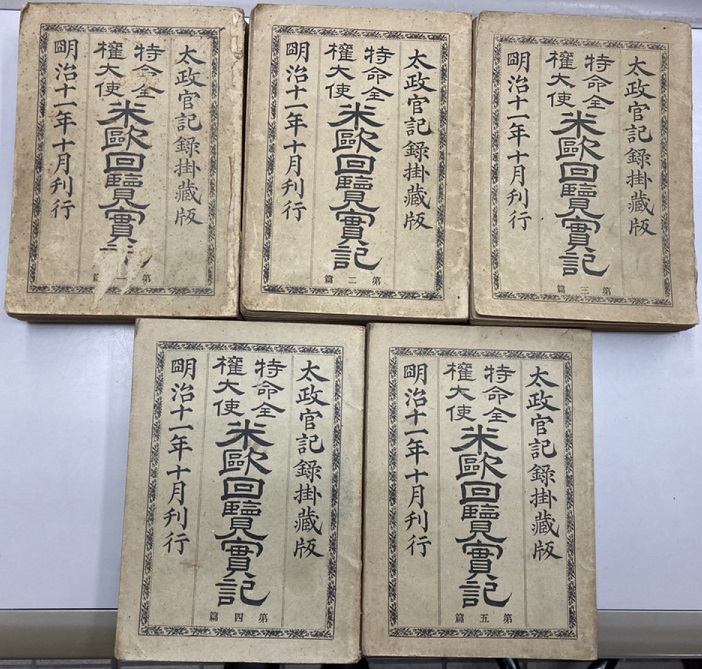 太政官記錄掛藏版
特命全
權大使
米歐回覽實
明治十一年十月刊行
第一篇
太政官記錄掛藏版
特命全
權大使
米歐回覽實記
明治十一年十月刊行
第二篇
太政官記錄掛藏版
特命全
權大使
米歐回覽實記
明治十一年十月刊行
第三篇
太政官記錄掛藏版
特命全
權大使
米歐回覽實記
明治十一年十月刊行
第四篇
太政官記錄掛藏版
特命全
權大使
米歐回覽實記
明治十一年十月刊行
第五篇